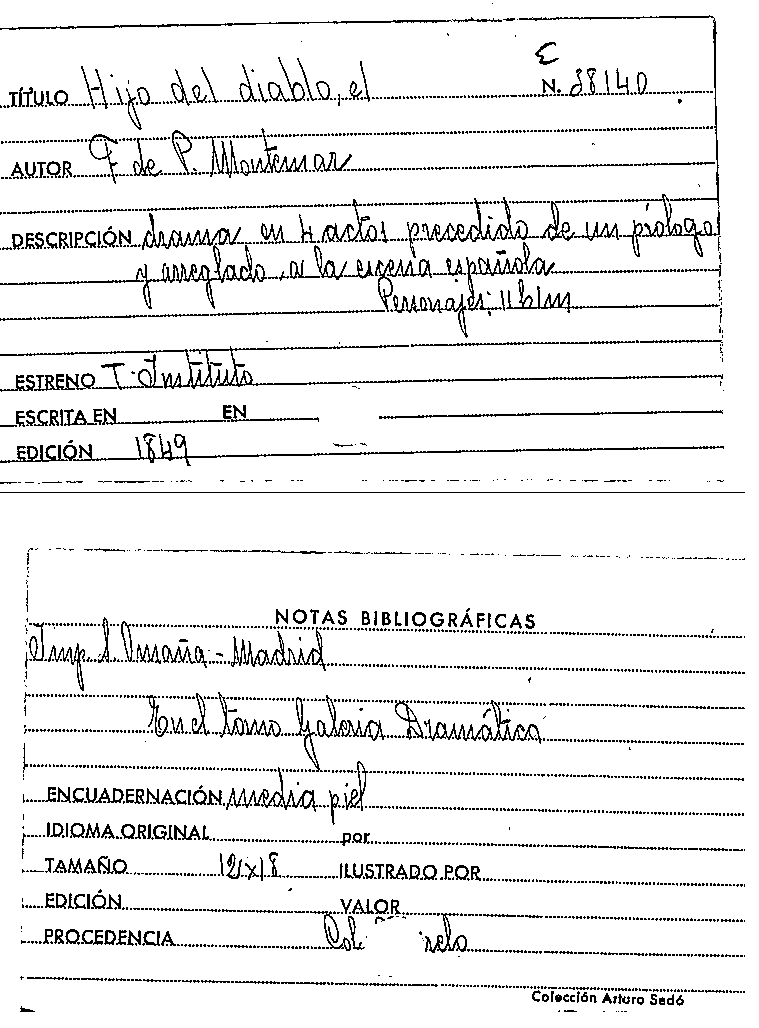 ε
TÍTULO Hijo del diablo, el N. 38140
AUTOR F de P. Montemar
DESCRIPCIÓN drama en 4 actos precedido de un prólogo
y arreglado a la escena española
Personajes: 11 h 1 m
ESTRENO T. Instituto
ESCRITA EN EN
EDICIÓN 1849
NOTAS BIBLIOGRÁFICAS
Imp. S. Omaña - Madrid
En el tomo Galeria Dramática
ENCUADERNACIÓN media piel
IDIOMA ORIGINAL por
TAMAÑO 12x18 ILUSTRADO POR
EDICIÓN VALOR
PROCEDENCIA Col
Colección Arturo Sedó